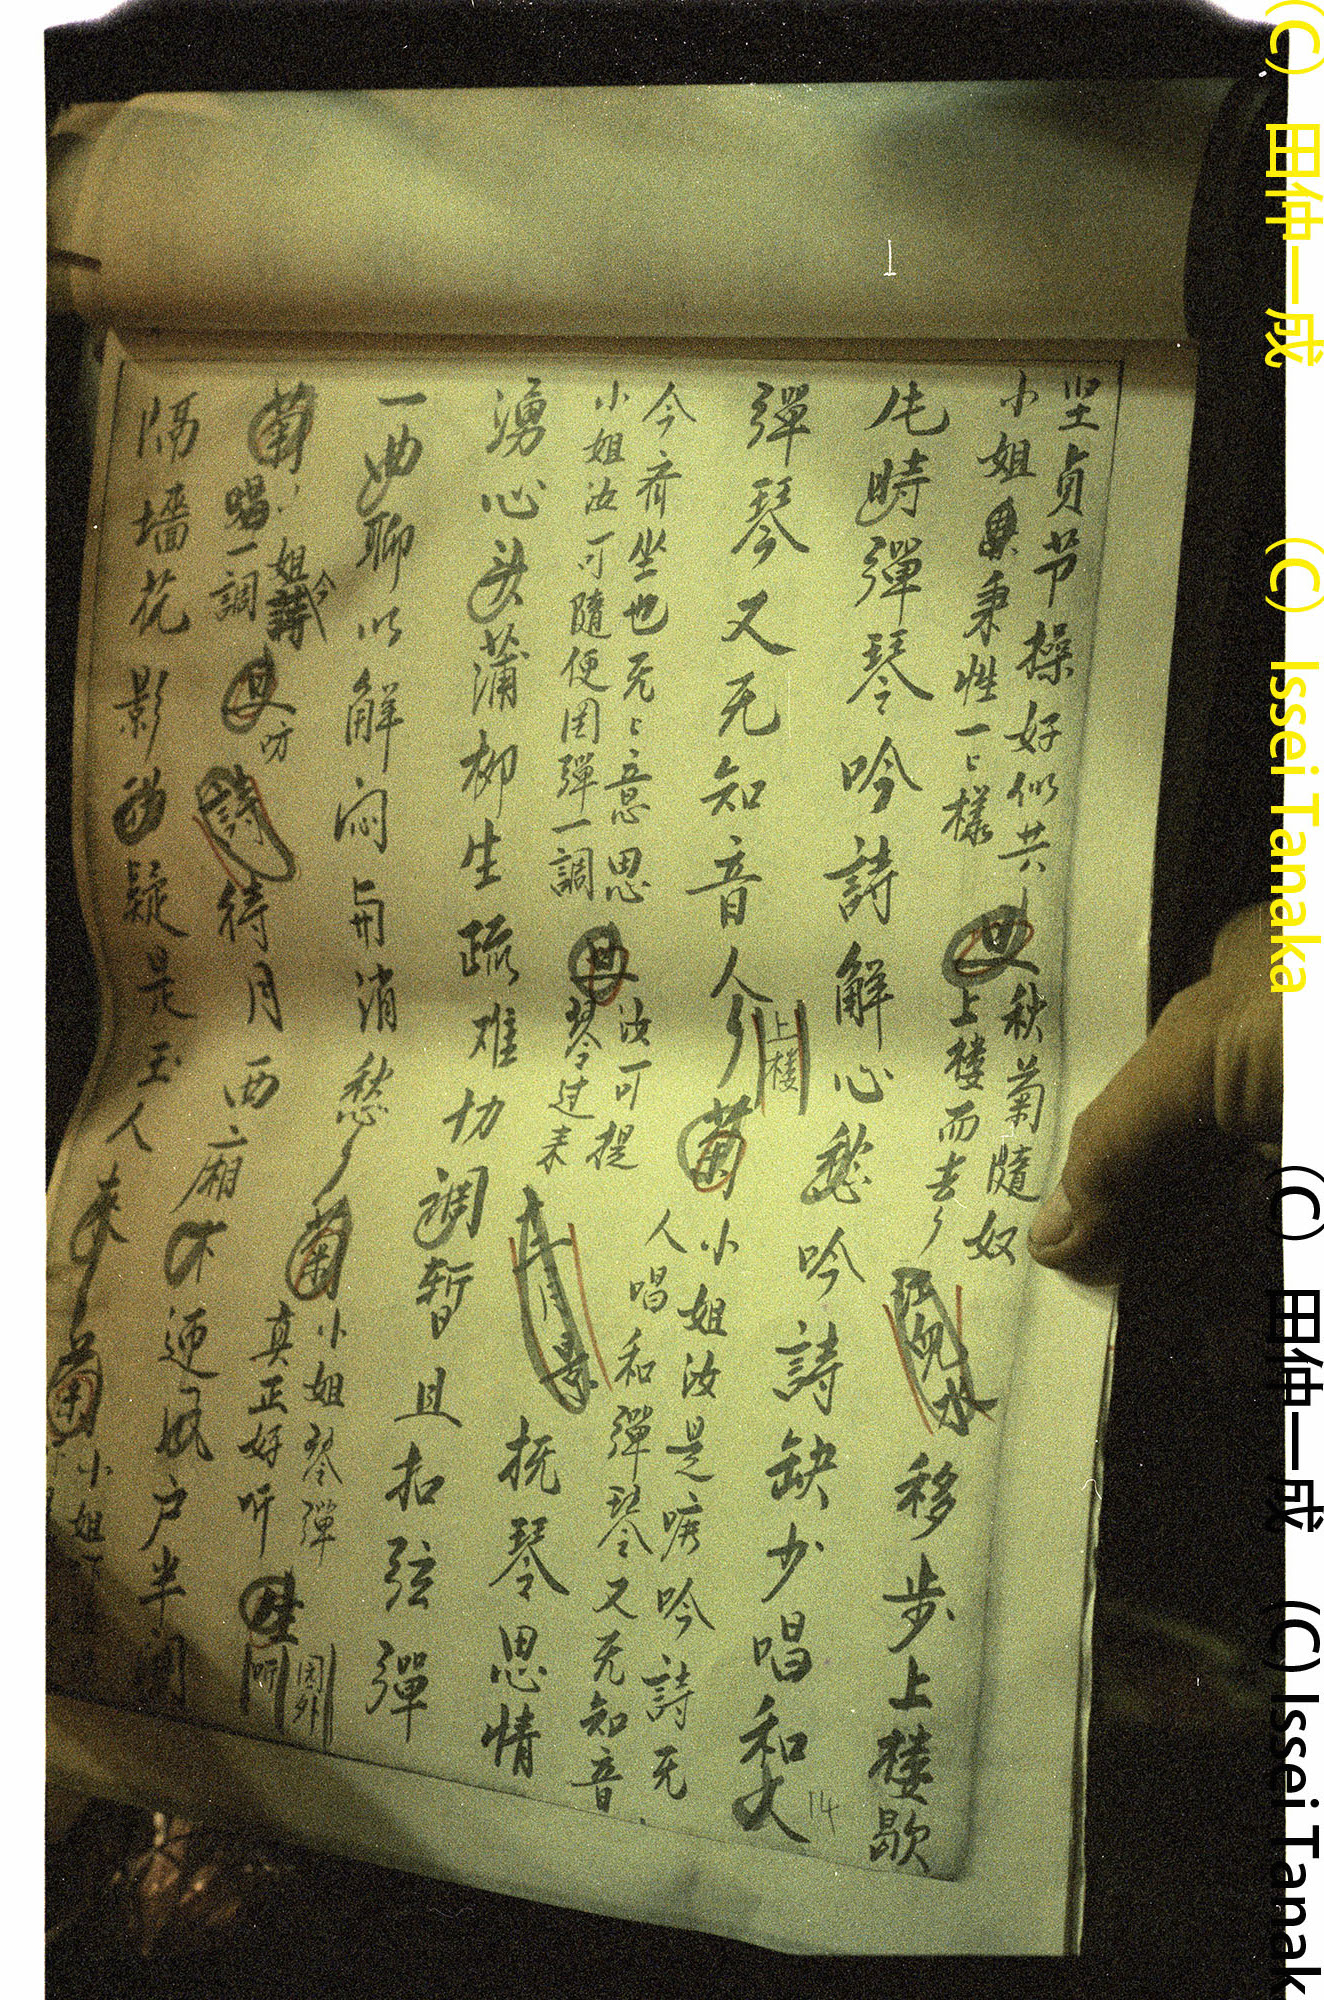 坚贞节操好似共
小姐秉性一と樣
旦 秋菊隨奴
上楼而去
江兒水 移步上楼歇
時彈琴吟詩解心愁吟詩缺少唱和
14
彈琴又无知音人
上楼
菊 小姐汝是 吟詩无
人唱和彈琴又无知音
今齐坐也无と意思
小姐汝可隨便因彈一調
旦 汝可提
琴过来
月景 抚琴思情
湧心头蒲柳生疏难切調暂且扣弦彈
一曲聊以解闷与消愁
菊 小姐琴彈
真正好听
生
园外
听
菊 小姐今
唱一調
旦
詩 待月西廂下迎风户半開
隔墙花影動疑是玉人来
菊 小姐
(C) 田仲一成 (C) Issei Tanaka (C) 田仲一成 (C) Issei Tanak